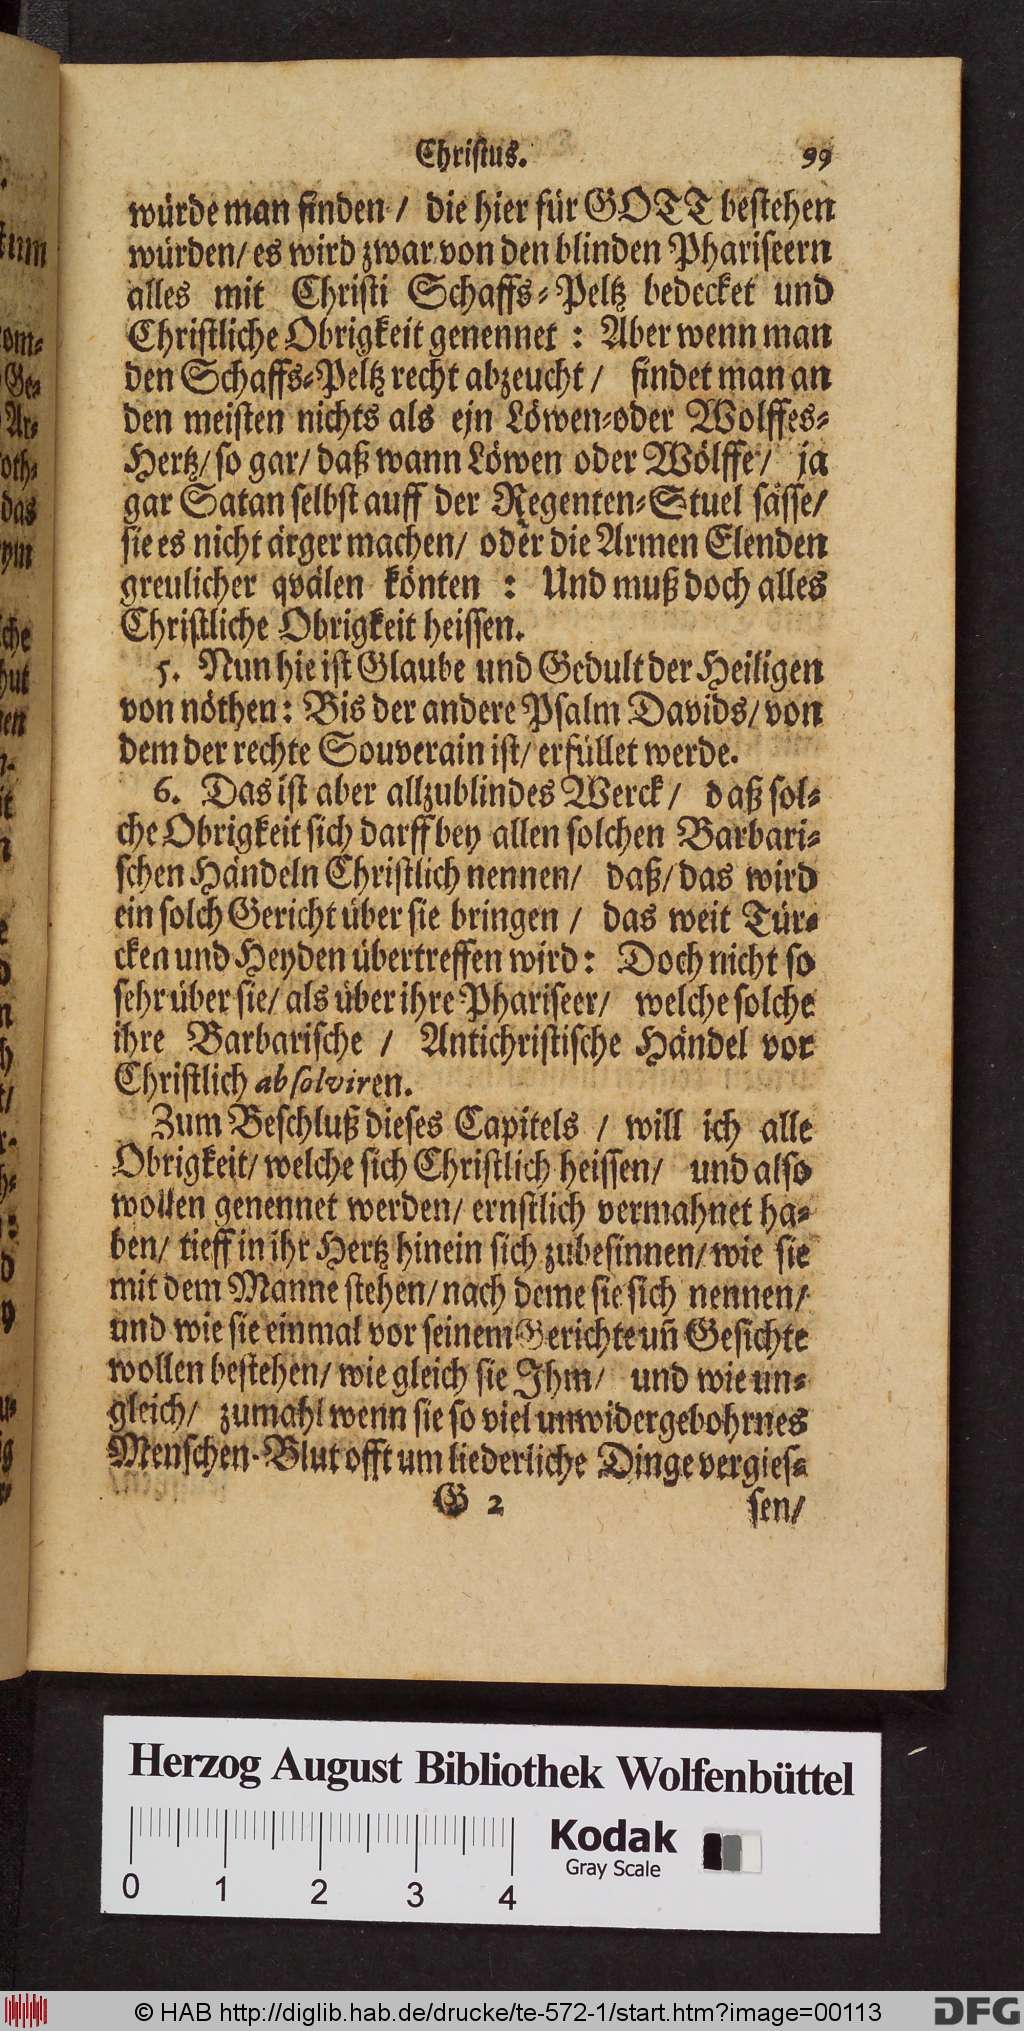 Christus. 99
würde man finden / die hier für GOTT bestehen
würden/ es wird zwar von den blinden Phariseern
alles mit Christi Schaffs-Peltz bedecket und
Christliche Obrigkeit genennet : Aber wenn man
den Schaffs-Peltz recht abzeucht / findet man an
den meisten nichts als ein Löwen-oder Wolffes-
Hertz/ so gar/ daß wann Löwen oder Wölffe/ ja
gar Satan selbst auff der Regenten-Stuel sässe/
sie es nicht ärger machen/ oder die Armen Elenden
greulicher qvälen könten : Und muß doch alles
Christliche Obrigkeit heissen.
5. Nun hie ist Glaube und Gedult der Heiligen
von nöthen: Bis der andere Psalm Davids/ von
dem der rechte Souverain ist/ erfüllet werde.
6. Das ist aber allzublindes Werck / daß sol-
che Obrigkeit sich darff bey allen solchen Barbari-
schen Händeln Christlich nennen/ daß/ das wird
ein solch Gericht über sie bringen / das weit Tür-
cken und Heyden übertreffen wird: Doch nicht so
sehr über sie/ als über ihre Phariseer/ welche solche
ihre Barbarische / Antichristische Händel vor
Christlich absolviren.
Zum Beschluß dieses Capitels / will ich alle
Obrigkeit/ welche sich Christlich heissen/ und also
wollen genennet werden/ ernstlich vermahnet ha-
ben/ tieff in ihr Hertz hinein sich zubesinnen/ wie sie
mit dem Manne stehen/ nach deme sie sich nennen/
und wie sie einmal vor seinem Gerichte uñ Gesichte
wollen bestehen/ wie gleich sie Ihm/ und wie un-
gleich/ zumahl wenn sie so viel unwidergebohrnes
Menschen-Blut offt um liederliche Dinge vergies-
G 2 sen/
Herzog August Bibliothek Wolfenbüttel
0 1 2 3 4
Kodak
Gray Scale
© HAB http://diglib.hab.de/drucke/te-572-1/start.htm?image=00113
DFG